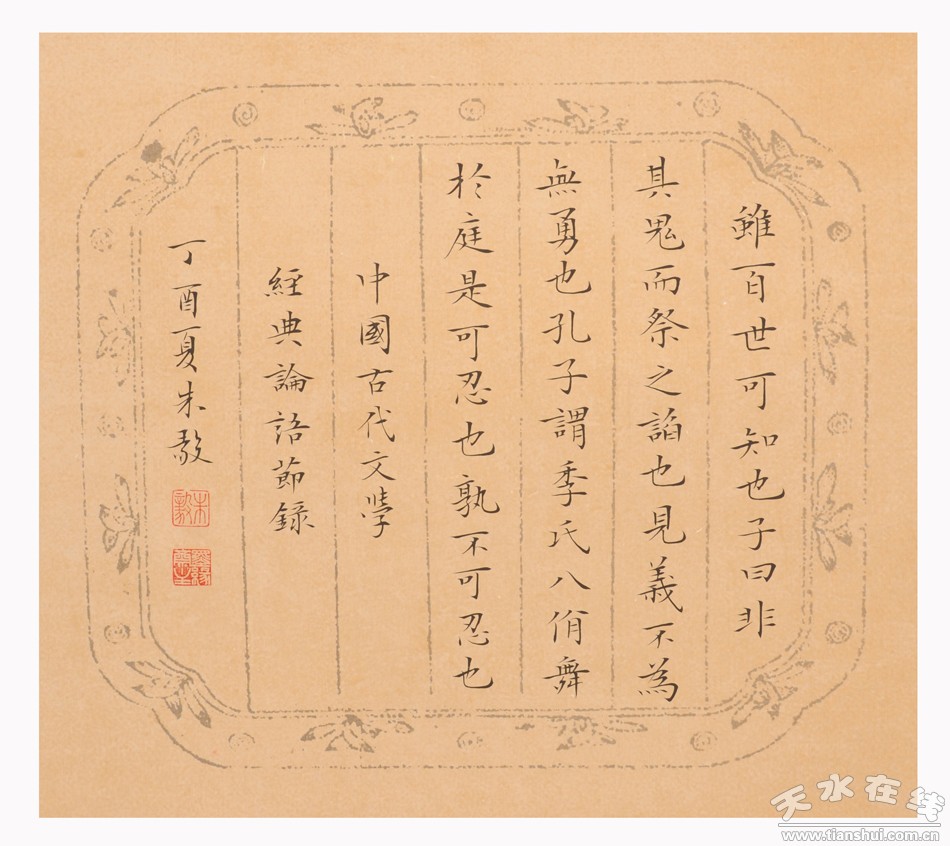 雖百世可知也子曰非
其鬼而祭之諂也見義不為
無勇也孔子謂季氏八佾舞
於庭是可忍也孰不可忍也
中國古代文學
經典論語節錄
丁酉夏朱敦
天水在线
www.tianshui.com.cn